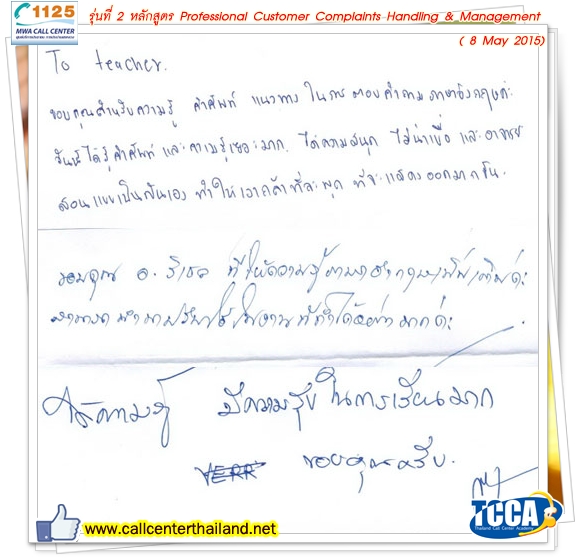 1125
MWA CALL CENTER
รุ่นที่ 2 หลักสูตร Professional Customer Complaints Handling & Management
( 8 May 2015)
To teacher.
ขอบคุณสำหรับความรู้ คำศัพท์ แนวทาง ในการ ตอบคำถาม ภาษาอังกฤษค่ะ
วันนี้ได้รู้คำศัพท์ และความรู้เยอะมาก. ได้ความสนุก ไม่น่าเบื่อ และอาจารย์
สอนแบบเป็นกันเอง ทำให้เรากล้าที่จะพูด ที่จะแสดงออกมากขึ้น.
ขอบคุณ อ. ที่ให้ความรู้ภาษาอังกฤษเพิ่มเติมค่ะ
สามารถนำมาปรับใช้ในงานที่ทำได้อย่างมากค่ะ
ได้ความรู้ มีความสุขในการเรียนมาก
ขอบคุณครับ.
www.callcenterthailand.net
TCCA
Thailand Call Center Academy